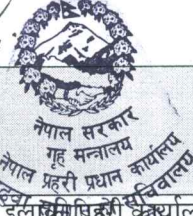 नेपाल सरकार
गृह मन्त्रालय
नेपाल प्रहरी प्रधान कार्यालय
सचिवालय